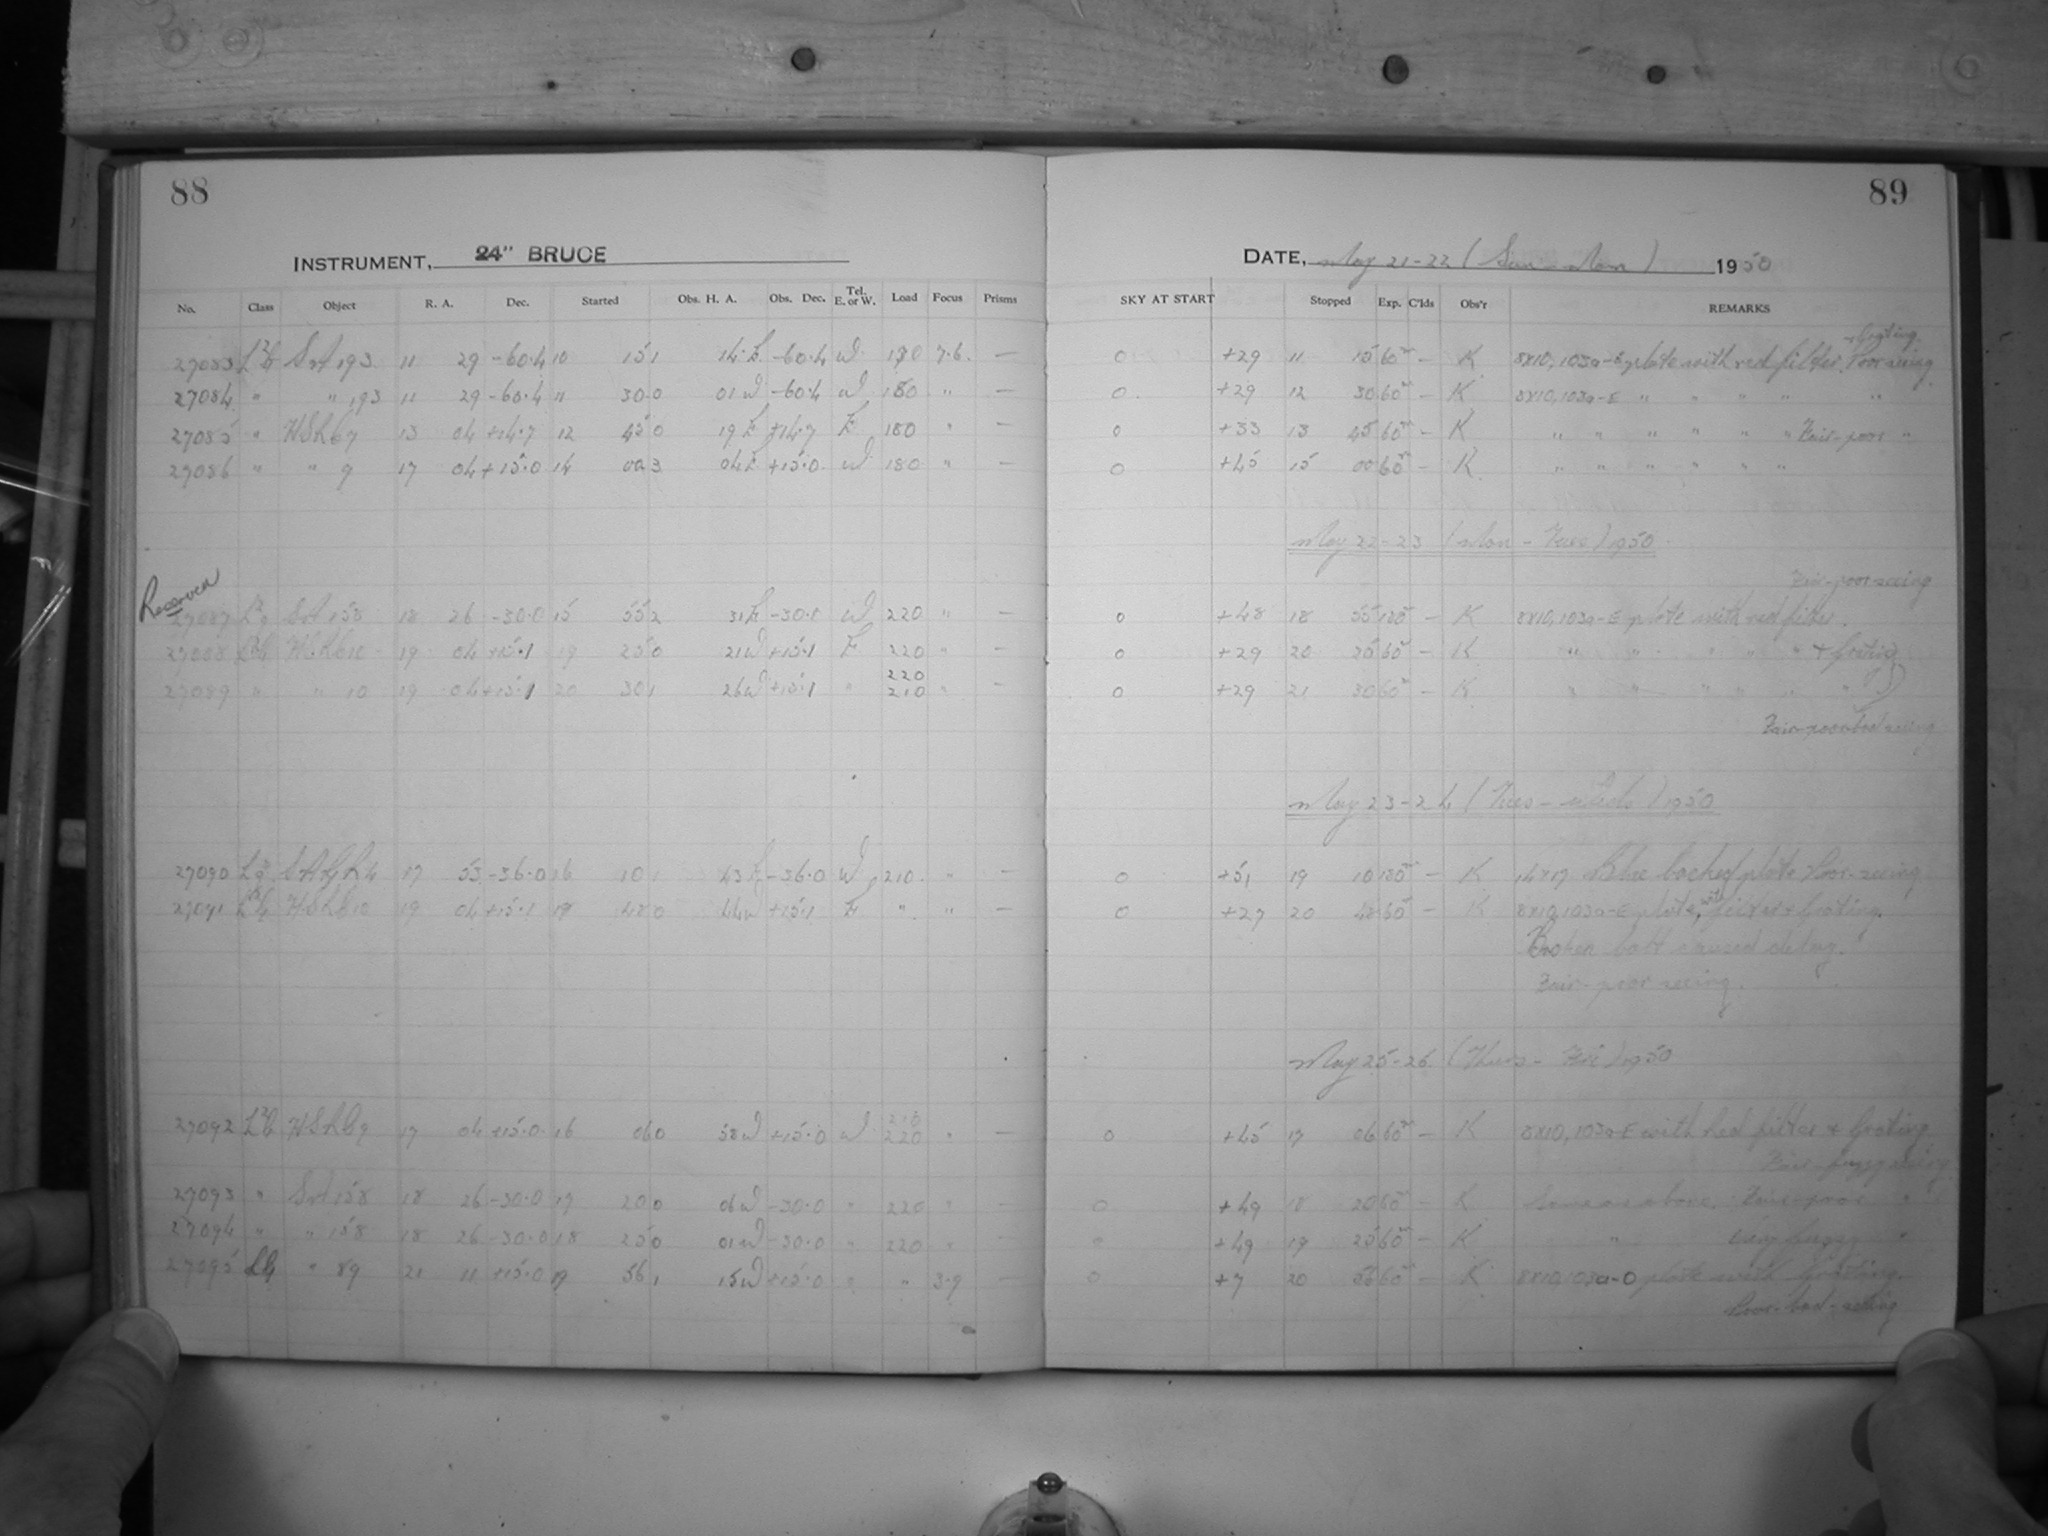 88
89
INSTRUMENT, 24" BRUCE
DATE, May 21-22 (Sun - Mon) 1950
No. Class Object R. A. Dec. Started Obs. H. A. Obs. Dec. Tel. E. or W. Load Focus Prisms SKY AT START Stopped Exp. C'lds Obs'r REMARKS
+ Grating
27083 193 11 29 -60.4 10 15 1 14 E -60.4 W 180 7.6 — 0 +29 11 15 60m — K 8x10, 103a-E plate with red filter. Poor seeing
27084 " " 193 11 29 -60.4 11 30 0 01 W -60.4 W 180 " — 0 +29 12 30 60m — K 8x10, 103a-E " " " " "
27085 " 7 13 04 +14.7 12 45 0 19 E +14.7 E 180 " — 0 +33 13 45 60m — K " " " " " " Fair-poor "
27086 " " 9 17 04 +15.0 14 00 3 04 E +15.0 W 180 " — 0 +45 15 00 60m — K " " " " " "
May 22-23 (Mon - Tues) 1950
Fair-poor seeing
27087 158 18 26 -30.0 15 55 2 31 E -30.0 W 220 " — 0 +48 18 55 180m — K 8x10, 103a-E plate with red filter.
27088 10 19 04 +15.1 19 25 0 21 W +15.1 E 220 " — 0 +29 20 25 60m — K " " " " " + Grating
220
27089 " " 10 19 04 +15.1 20 30 1 26 W +15.1 " 210 " — 0 +29 21 30 60m — K " " " " " "
Fair-poor-bad seeing
May 23-24 (Tues - Weds) 1950
27090 17 53 -36.0 16 10 1 43 E -36.0 W 210 " — 0 +51 19 10 180m — K 14x17 Blue backed plate Poor seeing
27091 10 19 04 +15.1 19 48 0 44 W +15.1 E " " — 0 +27 20 48 60m — K 8x10, 103a-E plate, with filter + Grating.
Broken bolt caused delay.
Fair-poor seeing.
May 25-26 (Thurs - Fri) 1950
210
27092 9 17 04 +15.0 16 06 0 58 W +15.0 W 220 " — 0 +45 17 06 60m — K 8x10, 103a-E with Red filter + Grating
seeing
27093 " 158 18 26 -30.0 17 20 0 06 W -30.0 " 220 " — 0 +49 18 20 60m — K Same as above. Fair-poor "
27094 " " 158 18 26 -30.0 18 25 0 01 W -30.0 " 220 " — " +49 19 25 60m — K " "
27095 " 89 21 11 +15.0 19 56 1 15 W +15.0 " " 3.9 — 0 +7 20 56 60m — K 8x10, 103a-O plate with Grating.
Poor-bad-seeing